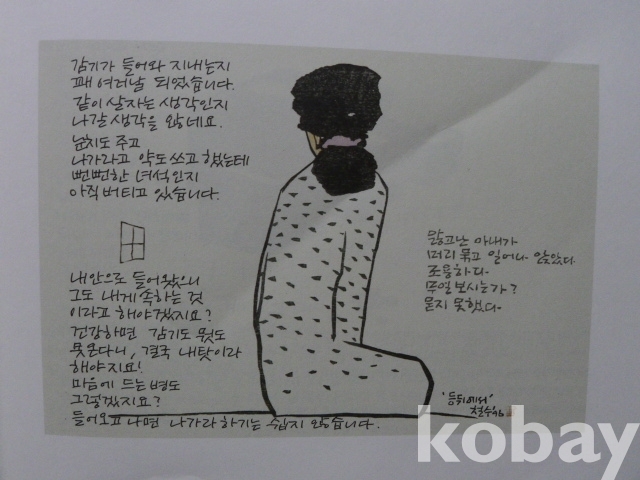 감기가 들어와 지내는지
꽤 여러날 되었습니다.
같이 살자는 생각인지
나갈 생각을 않네요.
눈치도 주고
나가라고 약도 쓰고 했는데
뻔뻔한 녀석인지
아직 버티고 있습니다.
내안으로 들어왔으니
그도 내게 속하는 것
이라고 해야겠지요?
건강하면 감기도 뭣도
못온다니, 결국 내탓이라
해야지요!
마음에 드는 병도
그렇겠지요?
들어오고 나면 나가라 하기는 쉽지 않습니다.
앓고난 아내가
머리 묶고 일어나 앉았다.
조용하다.
무얼 보시는가?
묻지 못했다.
'등뒤에서'
철수 96
kobay